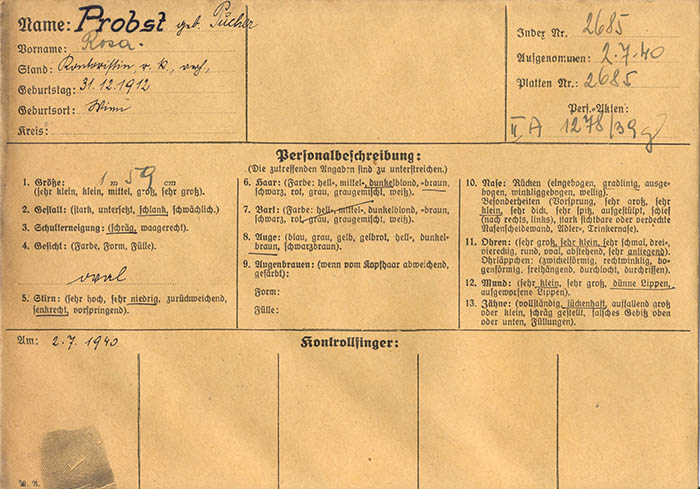 Name: Probst geb. Pucher
Vorname: Rosa.
Stand: Kontoristin, r. k., verh.
Geburtstag: 31.12.1912
Geburtsort: Wien
Kreis:
Index Nr. 2685
Aufgenommen: 2.7.40
Platten Nr.: 2685
Pers.-Akten:
II A 1278/39g
Personalbeschreibung:
(Die zutreffenden Angaben sind zu unterstreichen.)
1. Größe: 1 m 59 cm
(sehr klein, klein, mittel, groß, sehr groß).
2. Gestalt: (stark, untersetzt, schlank, schwächlich.)
3. Schulterneigung: (schräg, waagerecht).
4. Gesicht: (Farbe, Form, Fülle).
oval
5. Stirn: (sehr hoch, sehr niedrig, zurückweichend,
senkrecht, vorspringend).
6. Haar: (Farbe: hell-, mittel-, dunkelblond, -braun,
schwarz, rot, grau, graugemischt, weiß).
7. Bart: (Farbe: hell-, mittel-, dunkelblond, -braun,
schwarz, rot, grau, graugemischt, weiß).
8. Auge: (blau, grau, gelb, gelbrot, hell-, dunkel-
braun, schwarzbraun).
9. Augenbrauen: (wenn vom Kopfhaar abweichend,
gefärbt):
Form:
Fülle:
10. Nase: Rücken (eingebogen, gradlinig, ausge-
bogen, winkliggebogen, wellig).
Besonderheiten (Vorsprung, sehr groß, sehr
klein, sehr dick, sehr spitz, aufgestülpt, schief
(nach rechts, links), stark sichtbare oder verdeckte
Nasenscheidewand, Adler-, Trinkernase).
11. Ohren: (sehr groß, sehr klein, sehr schmal, drei-,
viereckig, rund, oval, abstehend, sehr anliegend).
Ohrläppchen: (zwickelförmig, rechtwinklig, bo-
genförmig, freihängend, durchlocht, durchrissen).
12. Mund: (sehr klein, sehr groß, dünne Lippen,
aufgeworfene Lippen).
13. Zähne: (vollständig, lückenhaft, auffallend groß
oder klein, schräg gestellt, falsches Gebiß oben
oder unten, Füllungen).
Am: 2.7.1940
Kontrollfinger: